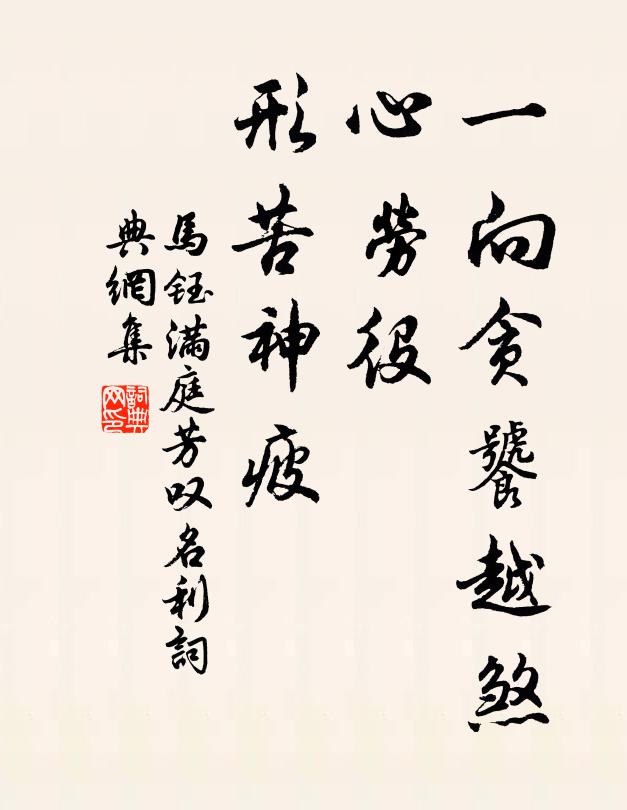 一向貪饕越煞
心勞役
形苦神疲
馬鈺滿庭芳叹名利詞
典網集
詞典网印